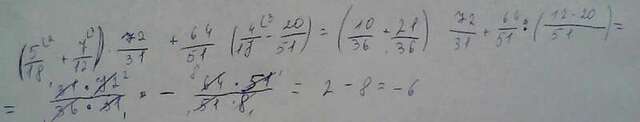 (5/18^(2 + 7/12^(3) · 72/31 + 64/51 (4/17^(3 - 20/51) = (10/36 + 21/36) 72/31 + 64/51 · (12-20/51) =
= 31·72²/36·31 - 64·51/51·8 = 2 - 8 = -6